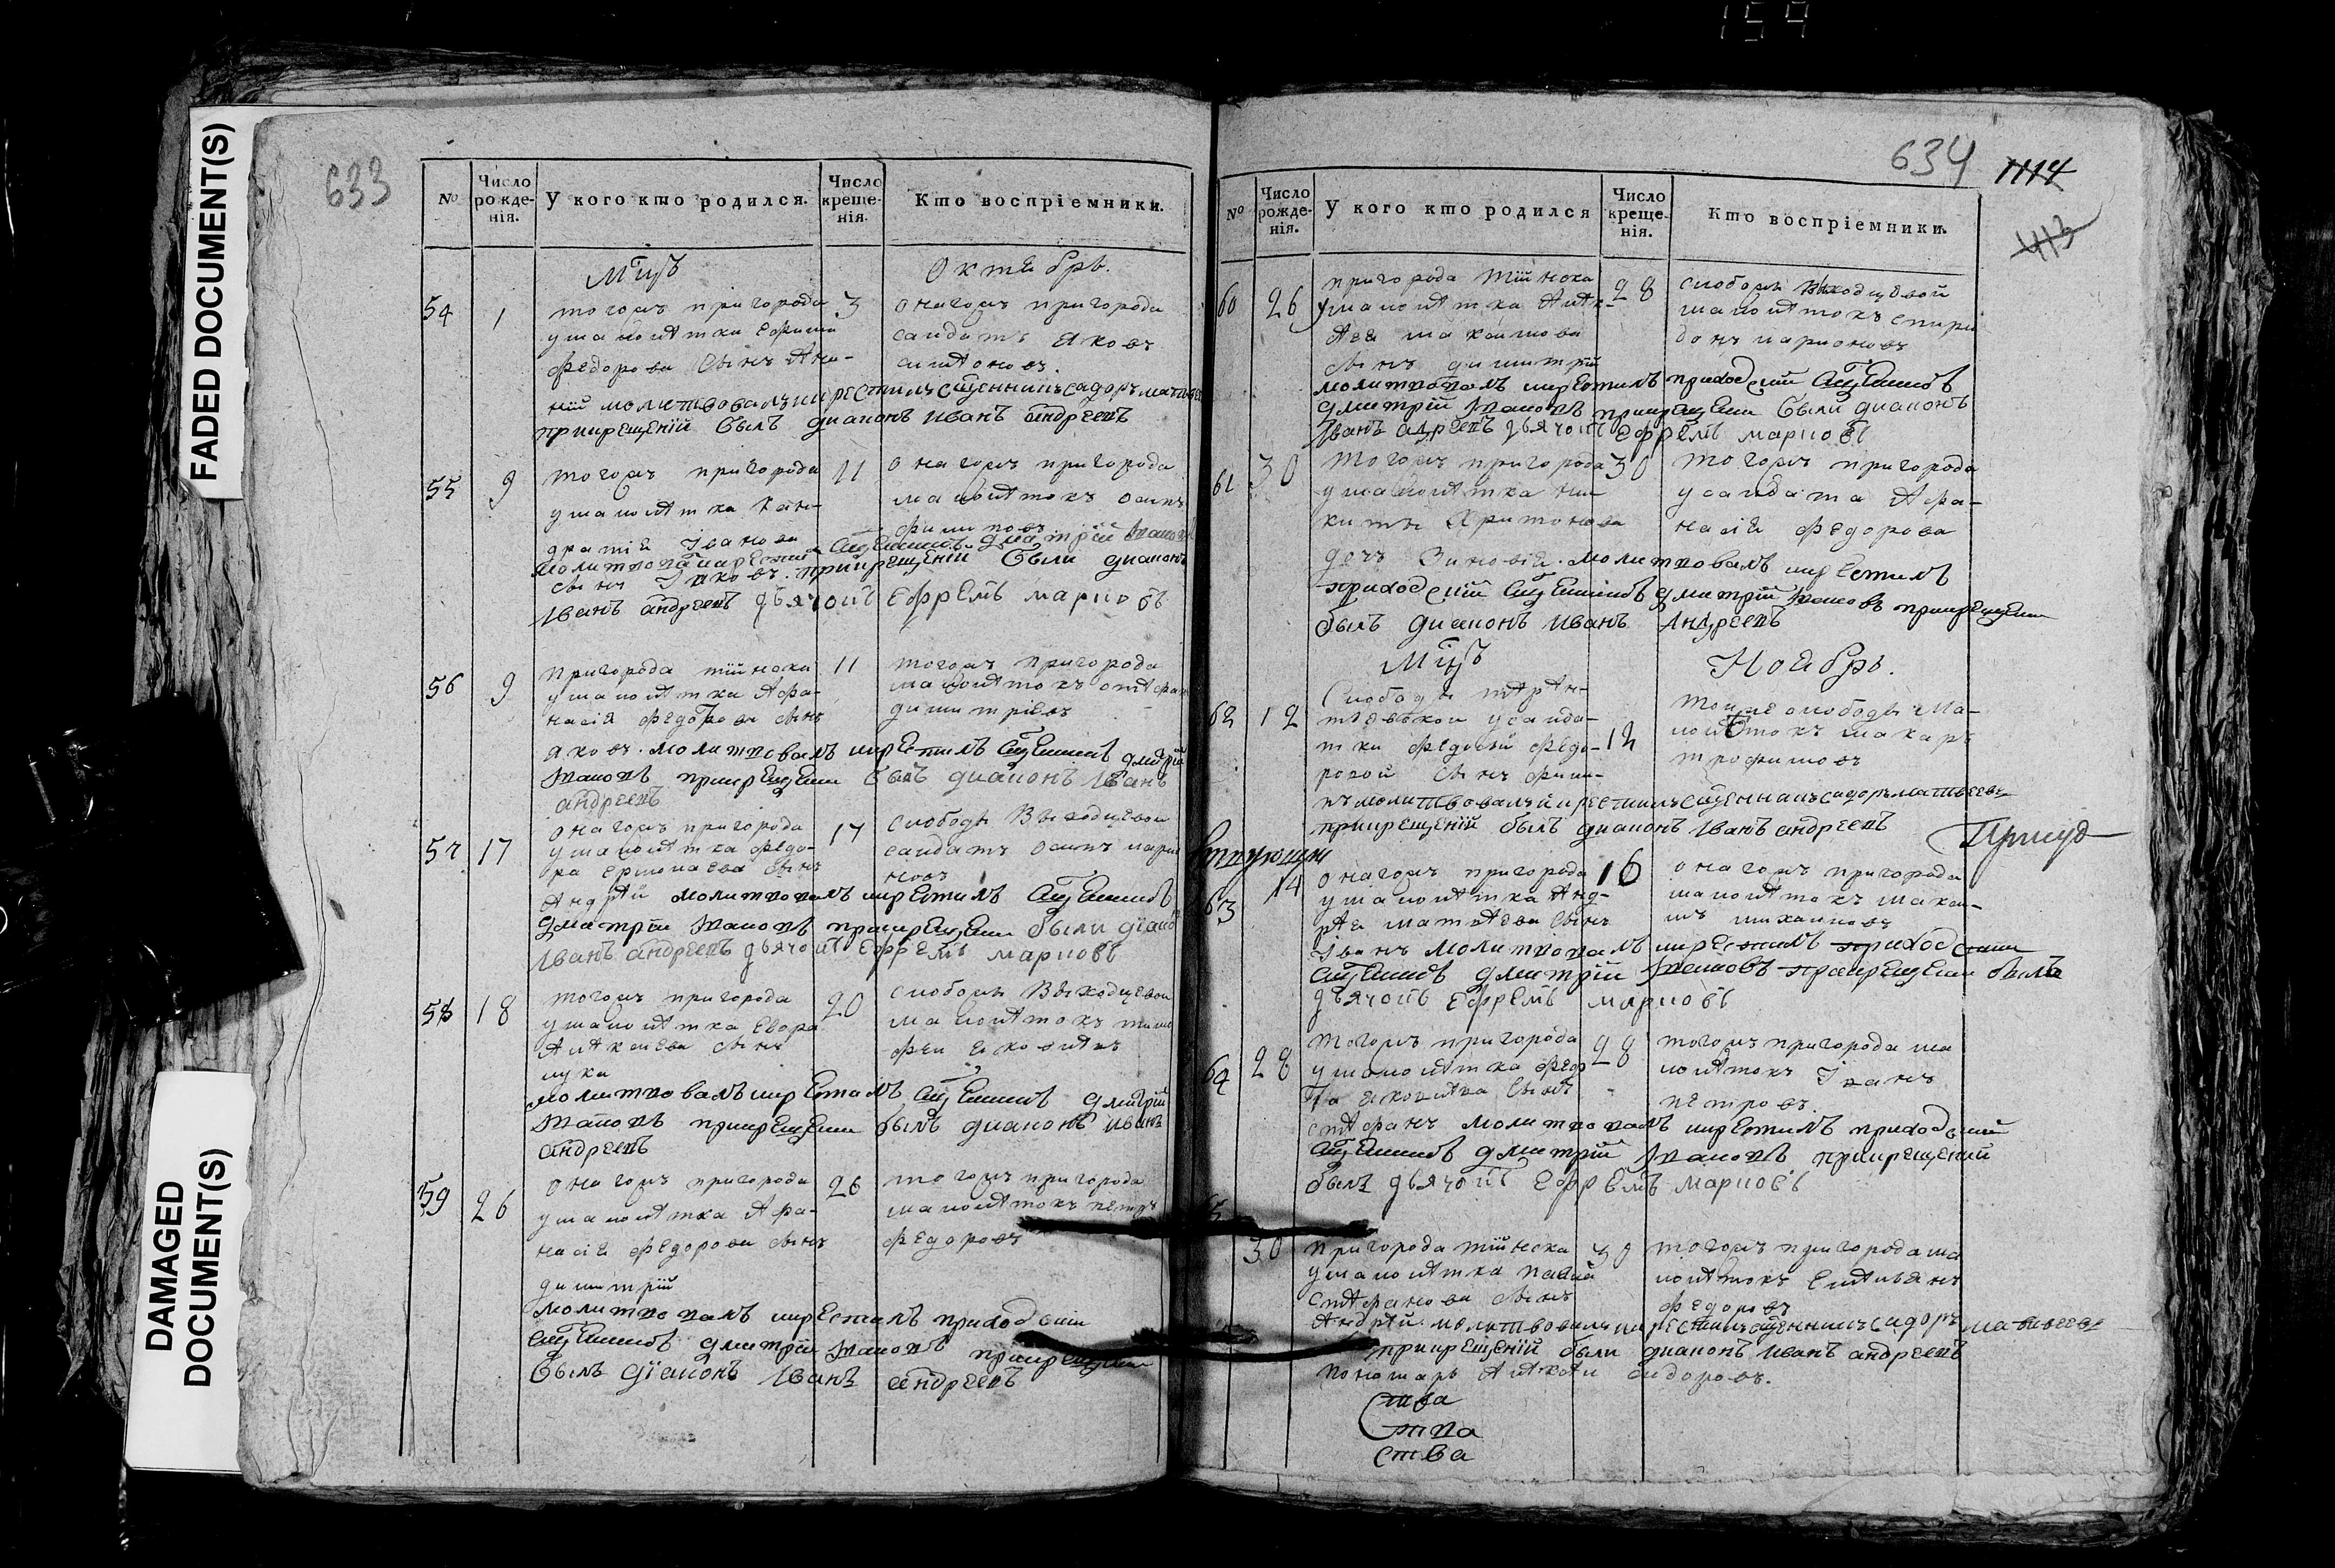 159
FADED DOCUMENT(S)
DAMAGED
DOCUMENT(S)
633
№ Число рожденія. У кого кто родился. Число крещенія. Кто воспріемники.
Мцъ Октябрь.
54 1 3
тогожъ пригорода
у малолетка Ефима
федорова сынъ Ана-
ній молитвовалъ и крестилъ сщенникъ сидоръ матвеевъ
прикрещеніи былъ диаконъ Иванъ андреевъ
онагожъ пригорода
салдатъ яковъ
антоновъ.
55 9 11
тогожъ пригорода
у малолетка Кон-
дратія Іванова
сынъ Іяковъ.
онагожъ пригорода
малолетокъ осипъ
филиповъ
молитвовалъ и крестилъ сщенникъ дмитрій
прикрещеніи были диаконъ
Иванъ андреевъ дьячокъ Ефремъ марковъ
56 9 11
пригорода тїинска
у малолетка Афа-
насія федорова сынъ
яковъ. молитвовалъ и крестилъ сщенникъ дмитрій
прикрещеніи былъ диаконъ Іванъ
андреевъ
тогожъ пригорода
малолетокъ стефанъ
димитріевъ
57 17 17
онагожъ пригорода
у малолетка федо-
ра ермолаева сынъ
Андрей молитвовалъ и крестилъ сщенникъ
дмитрій прикрещеніи были диаконъ
Иванъ андреевъ дьячокъ Ефремъ марковъ
слободы Выходцевой
салдатъ осипъ ларио
новъ
58 18 20
тогожъ пригорода
у малолетка Егора
Алексеева сынъ
лука
молитвовалъ и крестилъ сщенникъ дмитрій
прикрещеніи былъ диаконъ иванъ
андреевъ
слободы Выходцевой
малолетокъ тимо
фей яковлевъ
59 26 26
онагожъ пригорода
у малолетка Афа-
насія федорова сынъ
димитрій
молитвовалъ и крестилъ приходскій
сщенникъ дмитрій прикрещеніи
былъ диаконъ Иванъ андреевъ
тогожъ пригорода
малолетокъ петръ
федоровъ
634 1114
413
№ Число рожденія. У кого кто родился Число крещенія. Кто воспріемники.
60 26 28
пригорода тїинска
у малолетка Алек-
сея максимова
сынъ димитрїй
молитвовалъ и крестилъ приходскій сщенникъ
дмитрій прикрещеніи были диаконъ
Іванъ андреевъ дьячокъ Ефремъ марковъ
слободы Выходцевой
малолетокъ спири
донъ ларионовъ
61 30 30
тогожъ пригорода
у малолетка ни-
киты Харитонова
дочь Зиновія. молитвовалъ и крестилъ
приходскій сщенникъ дмитрій прикрещеніи
былъ диаконъ иванъ Андреевъ
тогожъ пригорода
у салдата Афа-
насія федорова
Мцъ Ноябрь.
62 12 12
Слободы терен-
тьевской у салда-
тки федосьи федо-
ровой сынъ фили-
пъ молитвовалъ и крестилъ сщенникъ сидоръ матвеевъ
прикрещеніи былъ диаконъ Іванъ андреевъ
тоиже слободы ма-
лолетокъ макаръ
трофимовъ
63 14 16
онагожъ пригорода
у малолетка Анд-
рея матвеева сынъ
Іванъ молитвовалъ и крестилъ приходскій
сщенникъ дмитрій прикрещеніи былъ
дьячокъ Ефремъ марковъ
онагожъ пригорода
малолетокъ макси-
мъ михаиловъ
64 28 28
тогожъ пригорода
у малолетка федо-
та яковлева сынъ
стефанъ молитвовалъ и крестилъ приходскій
сщенникъ дмитрій прикрещеніи
былъ дьячокъ Ефремъ марковъ
тогожъ пригорода ма
лолетокъ Іванъ
петровъ.
65 30 30
пригорода тїинска
у малолетка павла
стефанова сынъ
Андрей. молитвовалъ и крестилъ сщенникъ сидоръ матвеевъ
прикрещеніи были диаконъ иванъ андреевъ
пономарь Алексеи сидоровъ.
тогожъ пригорода ма
лолетокъ Емельянъ
федоровъ
ства